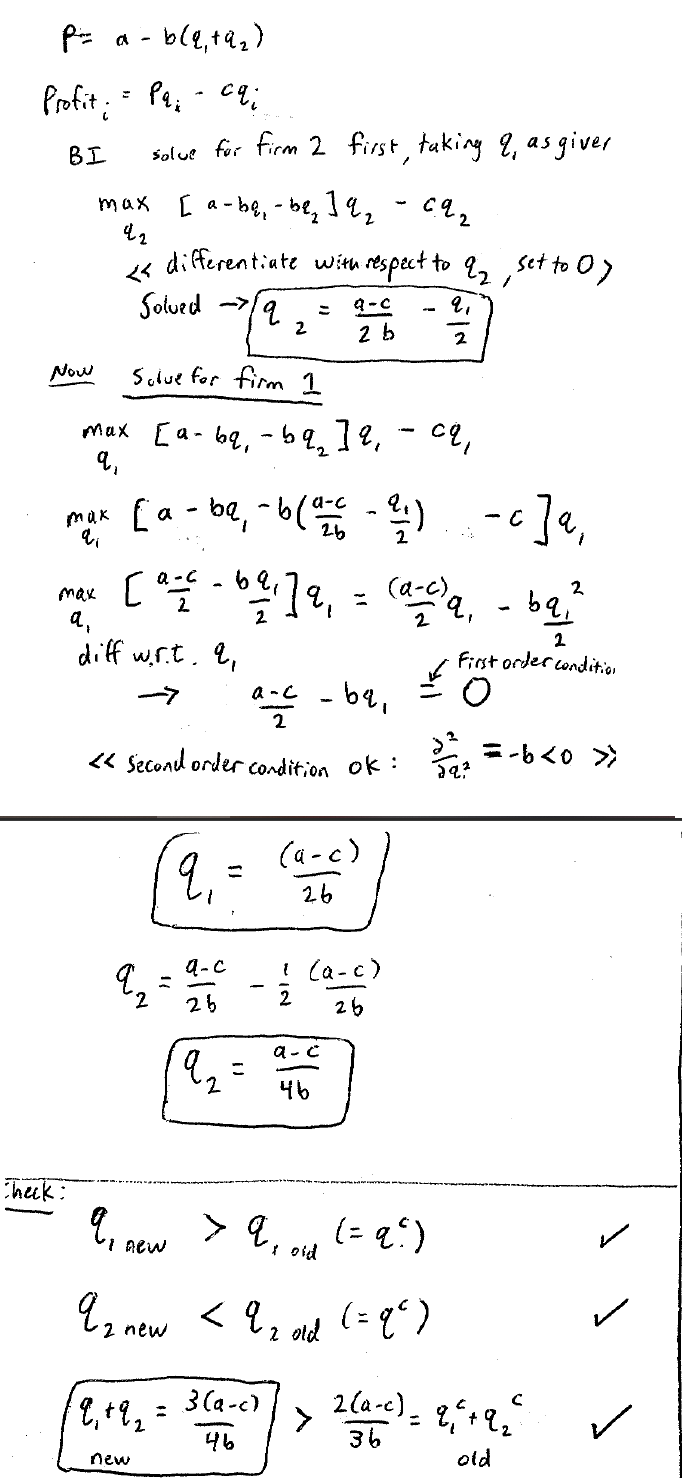 P = a - b(q₁+q₂)
Profitᵢ = Pqᵢ - cqᵢ
BI solve for firm 2 first, taking q₁ as given
max q₂ [a-bq₁-bq₂]q₂ - cq₂
<< differentiate with respect to q₂, set to 0 >
Solved → q₂ = (a-c)/2b - q₁/2
Now Solve for firm 1
max q₁ [a-bq₁-bq₂]q₁ - cq₁
max q₁ [a - bq₁ - b((a-c)/2b - q₁/2) - c]q₁
max q₁ [(a-c)/2 - bq₁/2]q₁ = (a-c)/2 q₁ - bq₁²/2
diff w.r.t. q₁
First order condition
→ (a-c)/2 - bq₁ = 0
<< Second order condition ok: ∂²/∂q₁² = -b<0 >>
q₁ = (a-c)/2b
q₂ = (a-c)/2b - 1/2 (a-c)/2b
q₂ = (a-c)/4b
Check:
q₁ new > q₁ old (= qᶜ) ✓
q₂ new < q₂ old (= qᶜ) ✓
q₁+q₂ = 3(a-c)/4b > 2(a-c)/3b = q₁ᶜ+q₂ᶜ ✓
new old